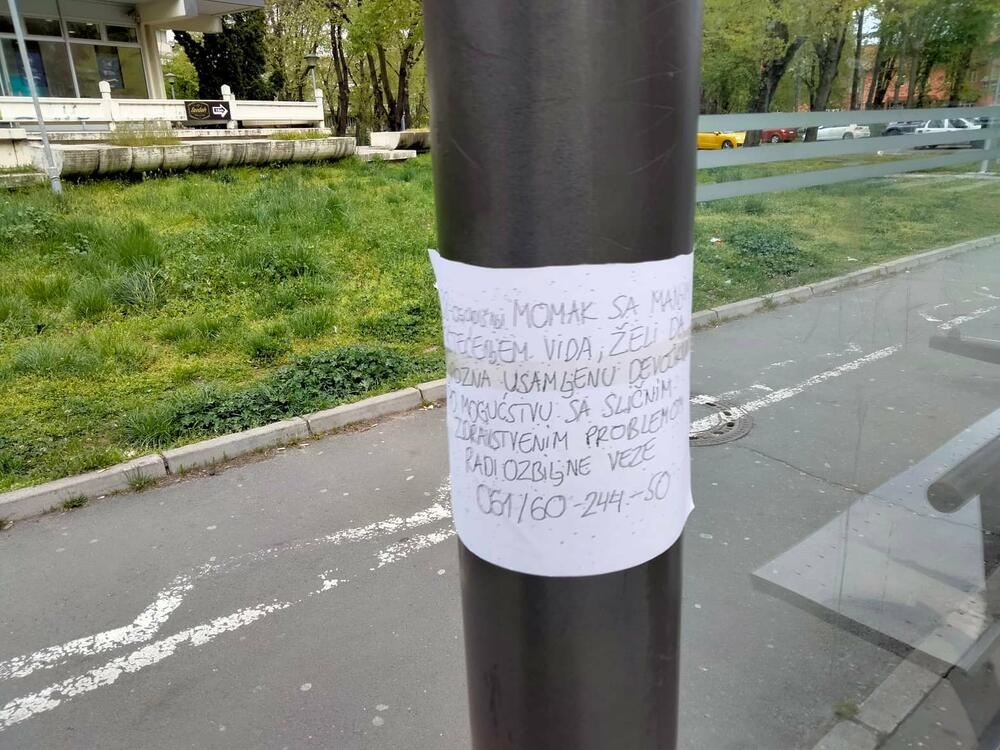 MOMAK SA
VIDA, ŽELI DA
USAMLJENU
MOGUĆSTVU SA SLIČNIM
ZDRAVSTVENIM PROBLEMOM
RADI OZBILJNE VEZE
061/60-244-50